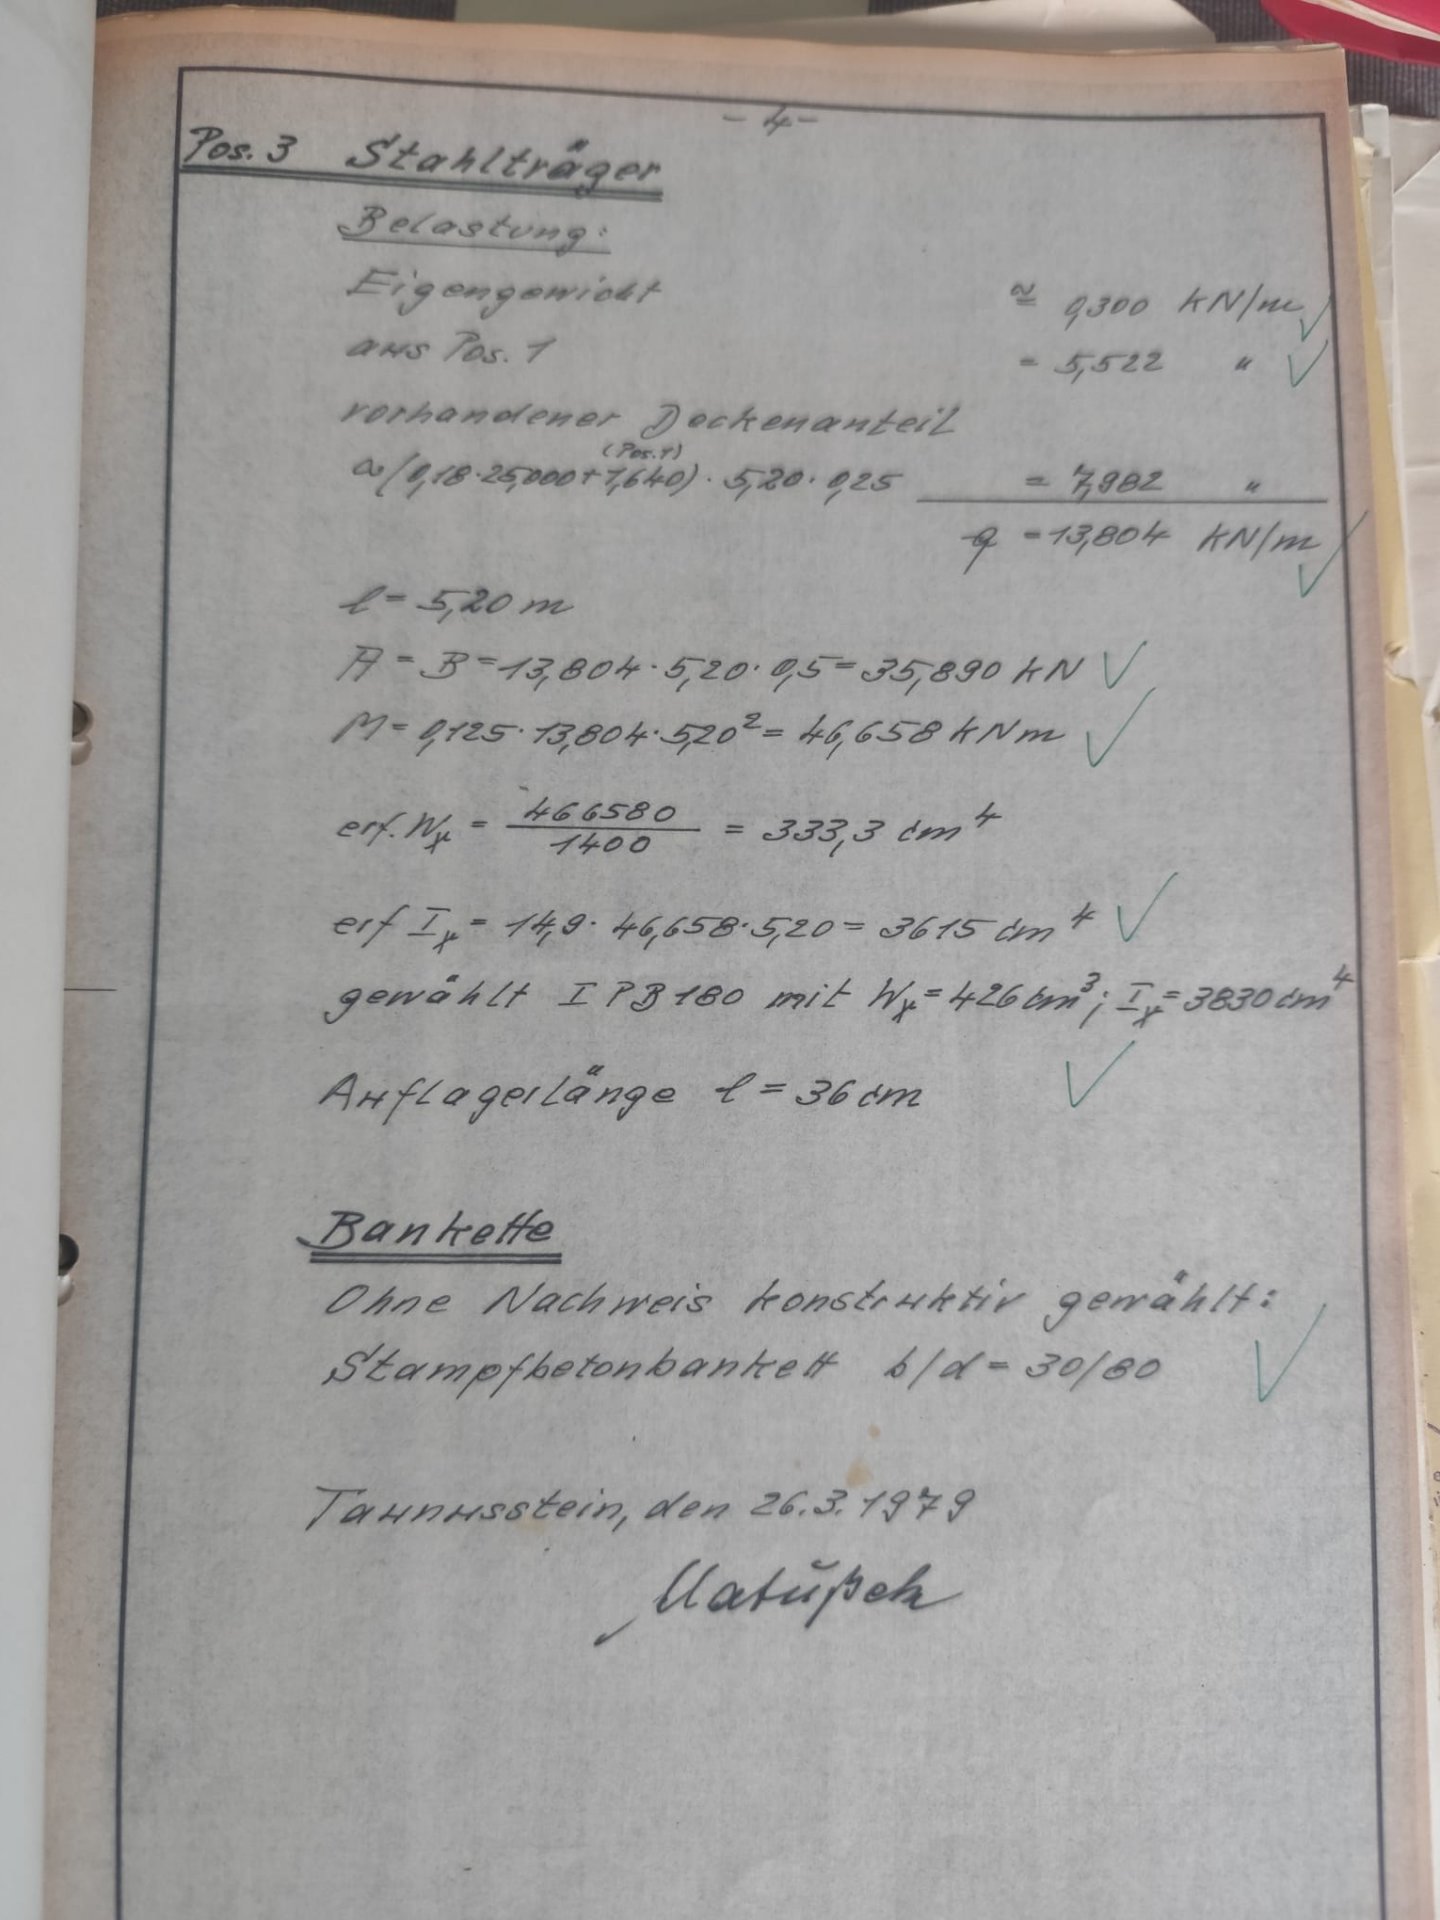 - 4 -
Pos. 3 Stahlträger
Belastung:
Eigengewicht ≅ 0,300 kN/m
aus Pos. 1 = 5,522 "
vorhandener Deckenanteil
(Pos. 1)
~(0,18·25,000+1,640)·5,20·0,25 = 7,982 "
q = 13,804 kN/m
l = 5,20 m
A = B = 13,804·5,20·0,5 = 35,890 kN
M = 0,125·13,804·5,20² = 46,658 kNm
erf. Wx = 466580 / 1400 = 333,3 cm⁴
erf Ix = 14,9·46,658·5,20 = 3615 cm⁴
gewählt IPB 180 mit Wx = 426 cm³; Ix = 3830 cm⁴
Auflagerlänge l = 36 cm
Bankette
Ohne Nachweis konstruktiv gewählt:
Stampfbetonbankett b/d = 30/80
Taunusstein, den 26.3.1979
Matußek